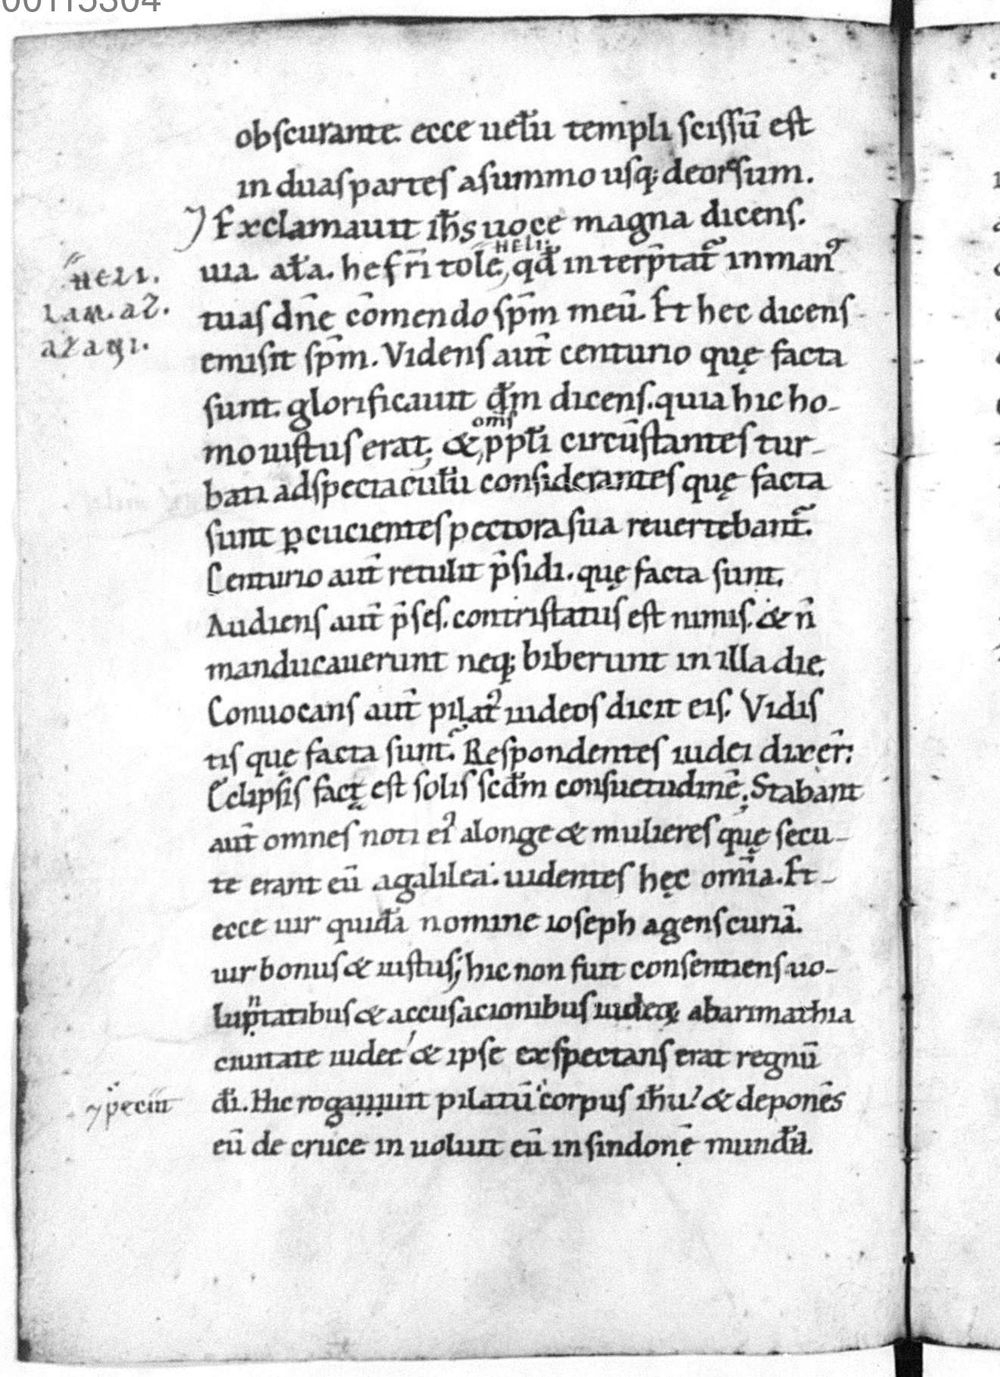 00115304
obscurante. ecce uelū templi scissū est
in duas partes a summo usq; deorsum.
⁊ Exclamauit ih̄s uoce magna dicens.
HELI
uia. ał̄a. hefrī tole, qđ interp̄tat̄ in man᾽
heli.
lam. az.
azagi.
tuas dn̄e cōmendo sp̄m meū. Et hec dicens
emisit sp̄m. Videns aut̄ centurio quę facta
sunt. glorificauit dm̄ dicens. quia hic ho-
oms̄
mo iustus erat; & ppłi circūstantes tur-
bati ad spectaculū considerantes quę facta
sunt ꝑcucientes pectora sua reuertebant̄.
Centurio aut̄ retulit p̄sidi. quę facta sunt.
Audiens aut̄ p̄ses. contristatus est nimis. & n̄
manducauerunt neq; biberunt in illa die.
Conuocans aut̄ pilat᾽ iudeos dicit eis. Vidis
tis quę facta sunt. Respondentes iudei dixer̄:
Eclipsis factę est solis scdm̄ consuetudinē. Stabant
aut̄ omnes noti ei᾽ a longe & mulieres quę secu-
te erant eū a galilea. uidentes hęc om̄ia. Et-
ecce uir quidā nomine ioseph agens curiā.
uir bonus & iustus; hic non fuit consentiens uo-
n
luptatibus & accusacionibus iudeoꝝ ab arimathia
ciuitate iudee & ipse exspectans erat regnū
⁊ peciit
dī. Hic rogauuit pilatū corpus ih̄u & deponēs
eū de cruce inuoluit eū in sindonē mundā.